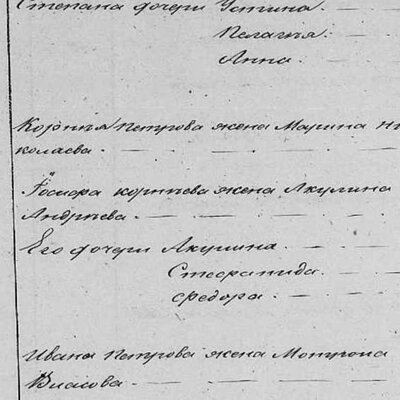 Степана дочери Устина.
Пелагея.
Анна.
Корнея Петрова жена Марина Ни
колаева
Сидора корнеева жена Акулина
Андреева.
Его дочери Акулина.
Степанида.
Федора.
Ивана Петрова жена Матрона
Власова